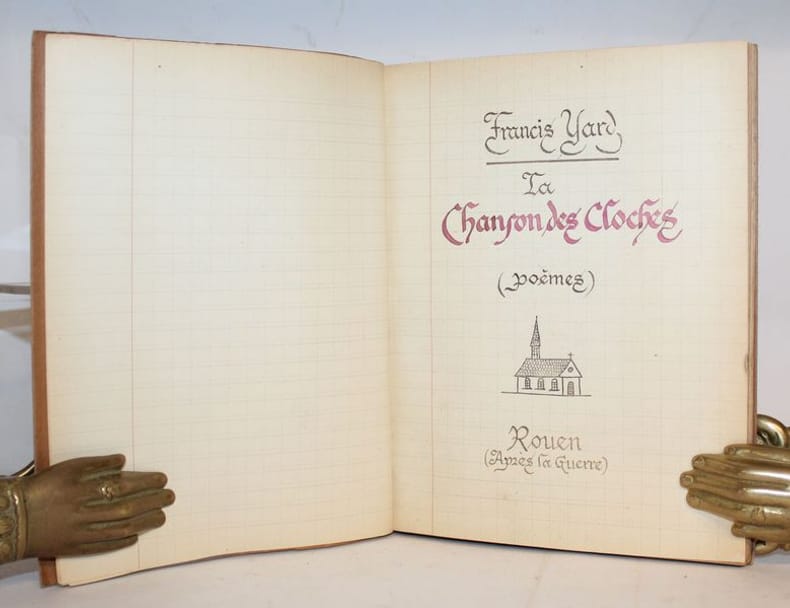 Francis Yard
La
Chanson des Cloches
(poèmes)
Rouen
(Après la Guerre)